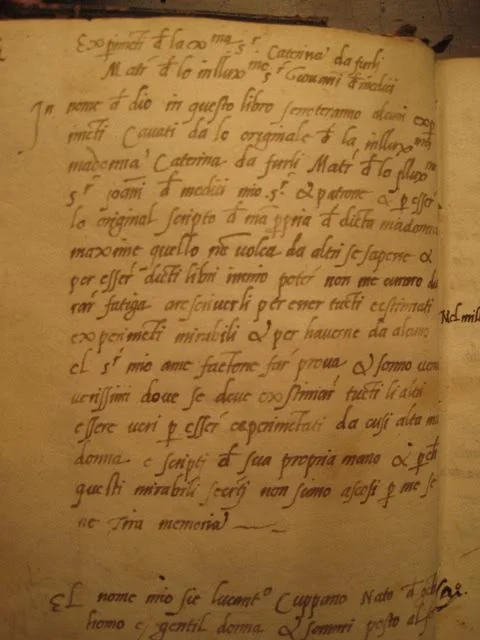 Experimēti d̄ la ex.ma S.r Caterina da furlj
Matr̄ d̄ lo inllux.mo s.r Giouanni d̄ medici
In nome d̄ dio in questo libro se noteranno alcuni exp
imēti Cauati da lo originale d̄ la illux.ma
madonna Caterina da furli Matr̄ d̄ lo illux.mo
s.r ioāni d̄ medici mio s.r & patrone & p̄ esser
lo original scripto d̄ mā p̄pria d̄ dicta madonna
maxime quello nō uolea da altri se sapere &
per esser̄ dicti libri in mio poter̄ non me curaro du
rar̄ fatiga a rescriuerli per esser tucti existimati
experimēti mirabili & per hauerne da alcuno
el s.r mio ame factone far̄ proua & sonno ueri
uerissimi doue se deue existimar̄ tucti li altri
essere ueri p̄ esser̄ experimētati da cusi alta ma
donna e scripti d̄ sua propria mano & p̄ch
questi mirabili secrēti non siano ascosi p̄ me se
ne Tira memoria
El nome mio sie lucant.o Cuppano Nato d̄
homo e gentil donna & sonni posto al
Nel mil